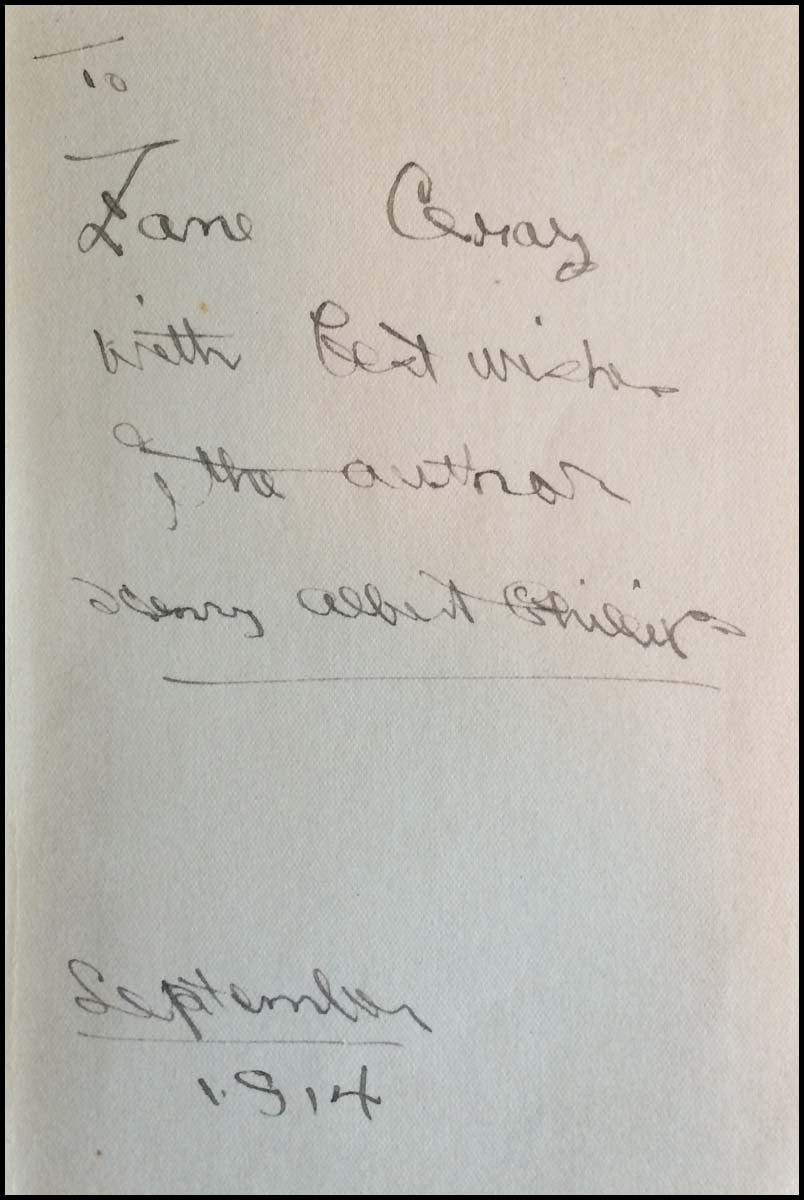 To
Zane Grey
with best wishes
of the author
Henry Albert Phillips
September
1914